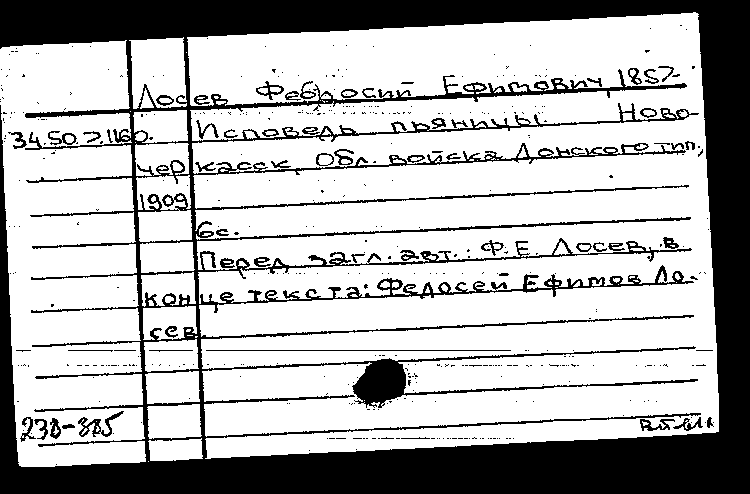 Лосев, Феодосий Ефимович, 1857-
34.50.7.1160. Исповедь пьяницы. Ново-
черкасск, Обл. войска Донского тип.,
1909
6с.
Перед загл. авт.: Ф.Е. Лосев, в
конце текста: Федосей Ефимов Ло-
сев.
238-385